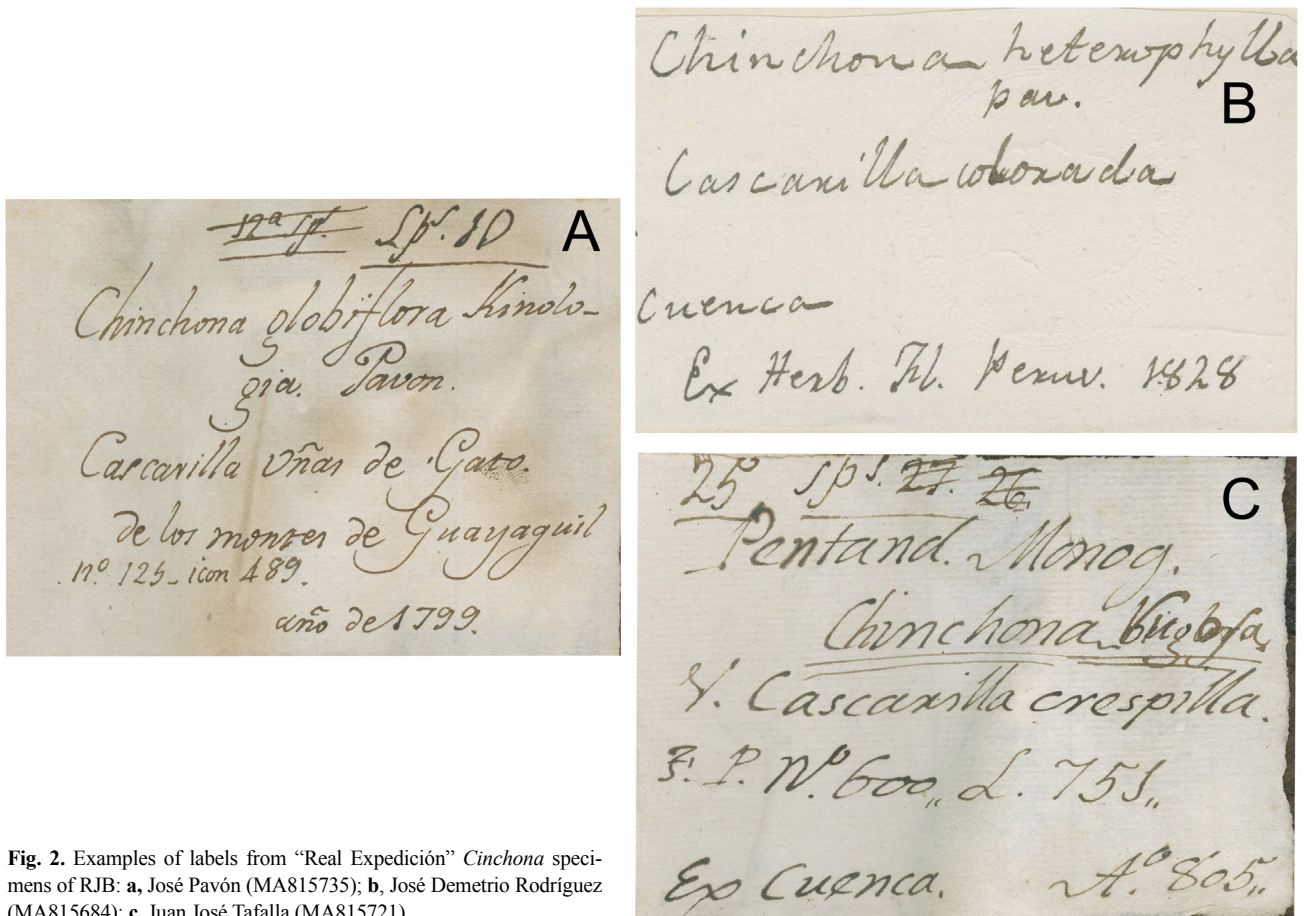 A
12ª sp. Sps. 10
Chinchona globiflora Kinolo-
gia. Pavon.
Cascarilla Uñas de Gato.
de los montes de Guayaquil
nº 125_ icon 489.
año de 1799.
B
Chinchona heterophylla
pav.
Cascarilla colorada
Cuenca
Ex Herb. Fl. Peruv. 1828
C
25 sps. 27. 26.
Pentand. Monog.
Chinchona
V. Cascarilla crespilla.
F. P. Nº. 600,, L. 751,,
Ex Cuenca. Aº. 805,,
Fig. 2. Examples of labels from “Real Expedición” Cinchona speci-
mens of RJB: a, José Pavón (MA815735); b, José Demetrio Rodríguez
(MA815684); c, Juan José Tafalla (MA815721).